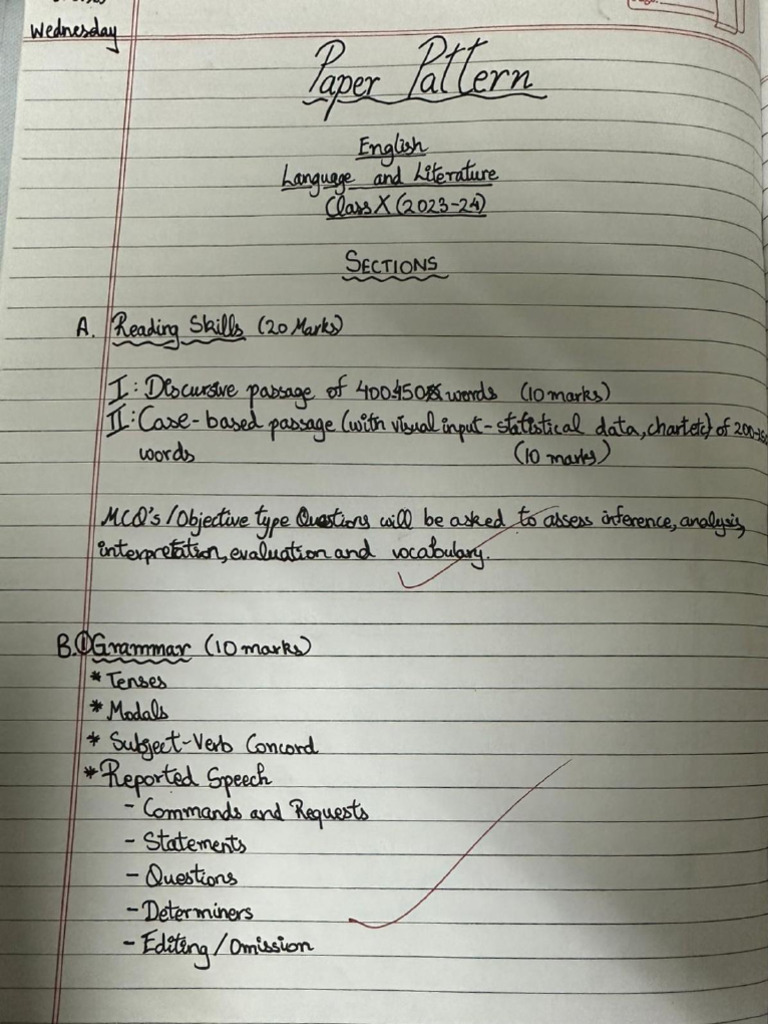 Wednesday
Paper Pattern
English
Language and Literature
Class X (2023-24)
SECTIONS
A. Reading Skills (20 Marks)
I: Discursive passage of 400-450 words (10 marks)
II: Case-based passage (with visual input-statistical data, chart etc) of 200-250
words (10 marks)
MCQ's/Objective type Questions will be asked to assess inference, analysis,
interpretation, evaluation and vocabulary.
B. ① Grammar (10 marks)
* Tenses
* Modals
* Subject-Verb Concord
* Reported Speech
- Commands and Requests
- Statements
- Questions
- Determiners
- Editing/Omission